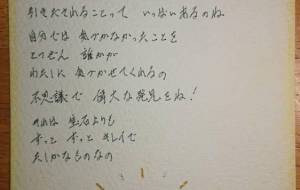 引き出されることって いっぱいあるのね
自分では 気づかなかったことを
とつぜん 誰かが
わたしに 気づかせてくれるの
不思議で 偉大な発見をね!
それは 宝石よりも
ずっと ずっと キレイで
たしかなものなの